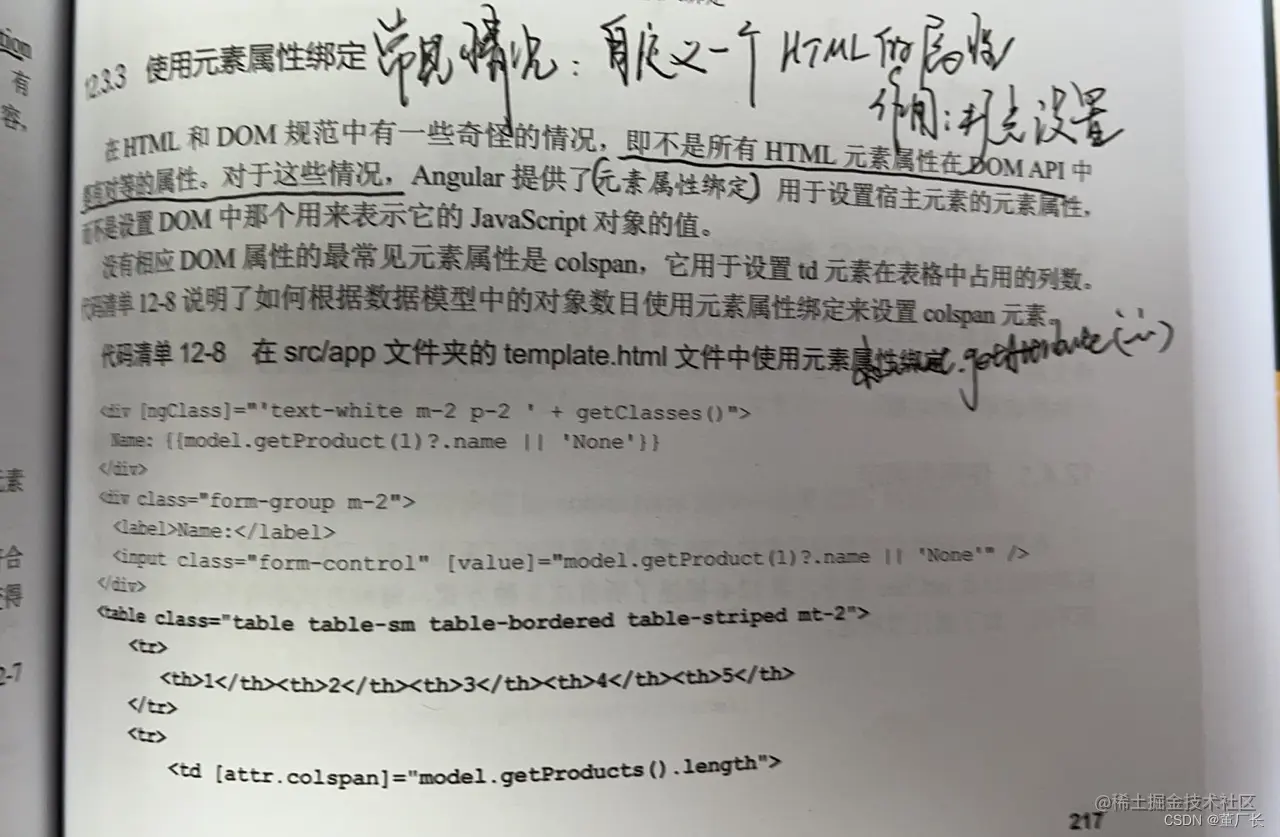 12.3.3 使用元素属性绑定 常见情况：自定义一个 HTML 的属性
作用：打点设置
在 HTML 和 DOM 规范中有一些奇怪的情况，即不是所有 HTML 元素属性在 DOM API 中
都有对等的属性。对于这些情况，Angular 提供了(元素属性绑定) 用于设置宿主元素的元素属性，
而不是设置 DOM 中那个用来表示它的 JavaScript 对象的值。
没有相应 DOM 属性的最常见元素属性是 colspan，它用于设置 td 元素在表格中占用的列数。
代码清单 12-8 说明了如何根据数据模型中的对象数目使用元素属性绑定来设置 colspan 元素。
代码清单 12-8 在 src/app 文件夹的 template.html 文件中使用元素属性绑定 .getAttribute(
<div [ngClass]="'text-white m-2 p-2 ' + getClasses()">
Name: {{model.getProduct(1)?.name || 'None'}}
</div>
<div class="form-group m-2">
<label>Name:</label>
<input class="form-control" [value]="model.getProduct(1)?.name || 'None'" />
</div>
<table class="table table-sm table-bordered table-striped mt-2">
<tr>
<th>1</th><th>2</th><th>3</th><th>4</th><th>5</th>
</tr>
<tr>
<td [attr.colspan]="model.getProducts().length">
217
tion
有
容，
元素
符合
变得
2-7
@稀土掘金技术社区
CSDN @董厂长